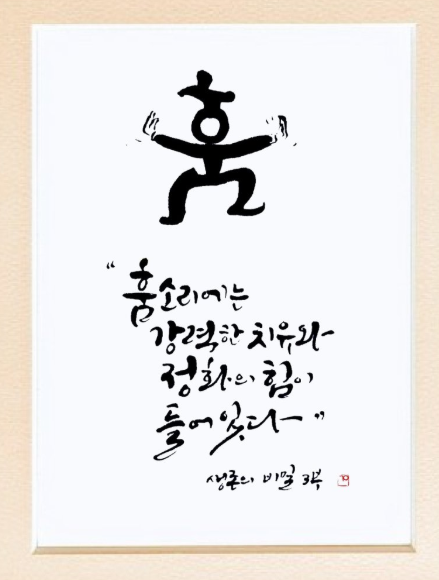 훔
"훔소리에는
강력한 치유와
정화의 힘이
들어있다"
생존의 비밀 3부